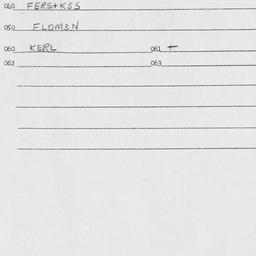 060 FERS+K3S
050 FLOM3N
060 KERL 061 +
062 063